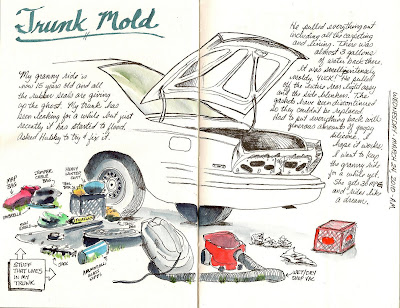 Trunk Mold
My granny ride is
now 15 years old and all
the rubber seals are giving
up the ghost. My trunk has
been leaking for a while but just
recently it has started to flood.
Asked Hubby to try & fix it.
He pulled everything out
including all the carpeting
and lining. There was
almost 3 gallons
of water back there.
It was
moldy, YUCK! He pulled
off the entire rear light assy
and the side blinkers. The
gaskets have been discontinued
so they couldn't be replaced.
Had to put everything back with
generous amounts of goopy
silicone. I
hope it works.
I want to keep
the granny ride
for a while yet.
She gets 30 MPG
and rides like
a dream.
WEDNESDAY MARCH 24, 2010
MAP
BAG
JUMPER
CABLE
BAG
HEAVY
WINTER
COAT
UMBRELLA
JACK
STUFF
THAT LIVES
IN MY
TRUNK
WET/DRY
SHOP VAC